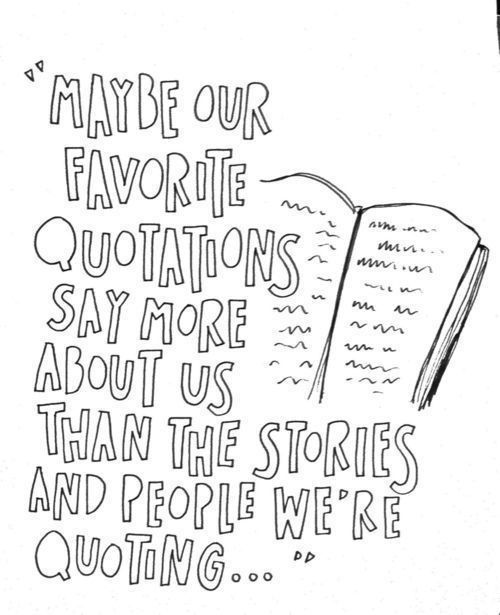 "MAYBE OUR
FAVORITE
QUOTATIONS
SAY MORE
ABOUT US
THAN THE STORIES
AND PEOPLE WE'RE
QUOTING... "